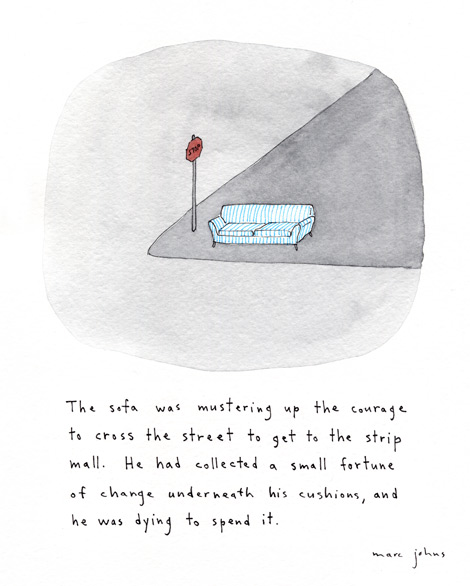 STOP
The sofa was mustering up the courage
to cross the street to get to the strip
mall. He had collected a small fortune
of change underneath his cushions, and
he was dying to spend it.
marc johns